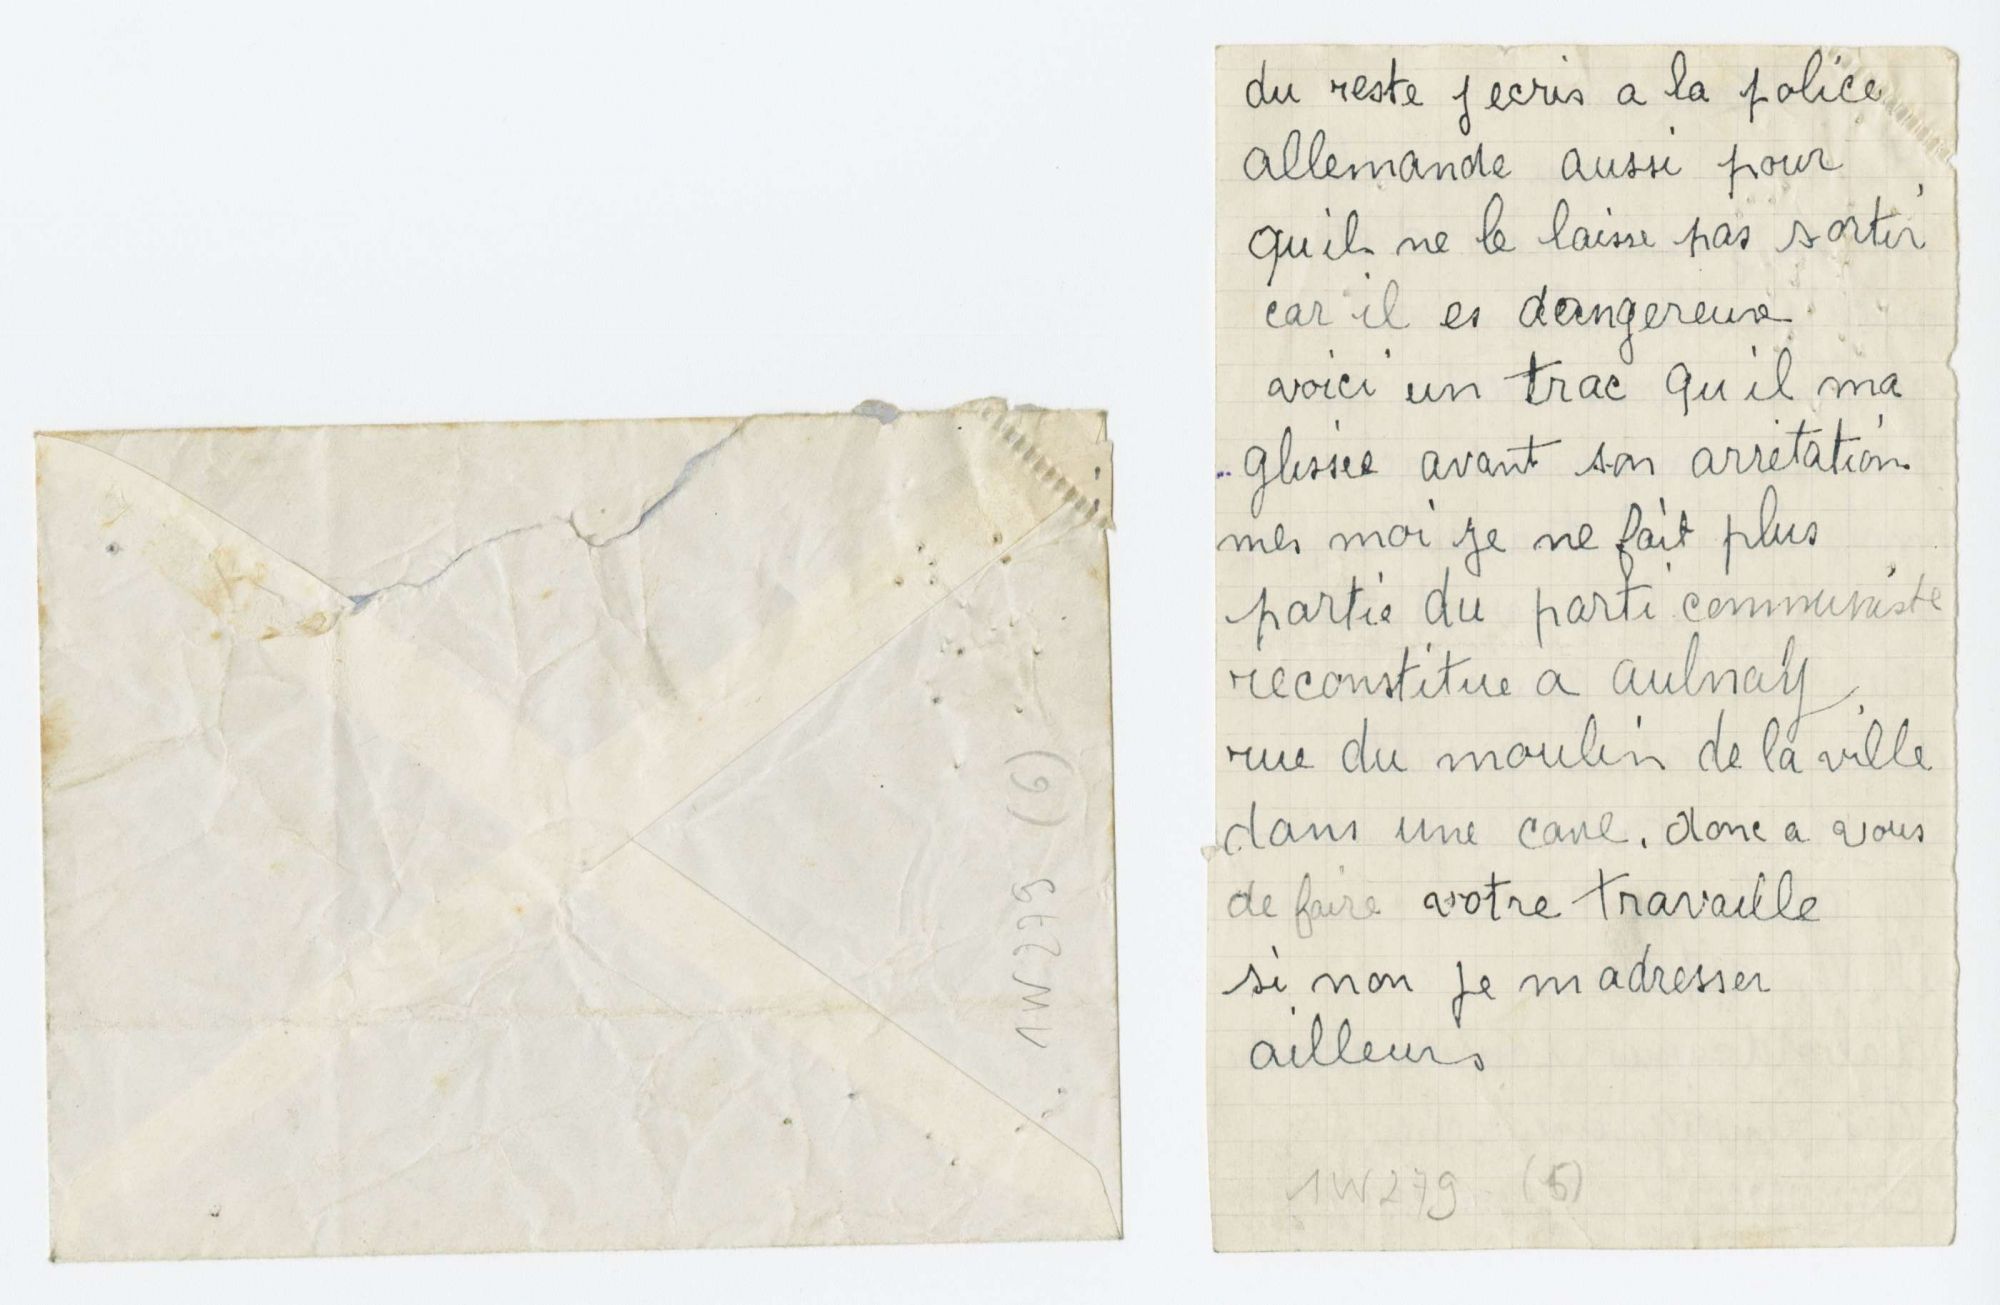 1W279 (6)
du reste j ecris a la police
allemande aussi pour
qu il ne le laisse pas sortir
car il es dangereux
voici un trac qu il ma
glissee avant son arretation
mes moi je ne fait plus
partie du parti communiste
reconstitue a aulnay
rue du moulin de la ville
dans une cave. donc a vous
de faire votre travaille
si non je m adresser
ailleurs
1W279 (5)